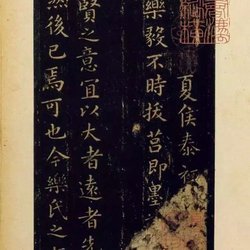 夏侯泰初
樂毅不時拔莒即墨
賢之意宜以大者遠者先
然後已焉可也今樂氏之